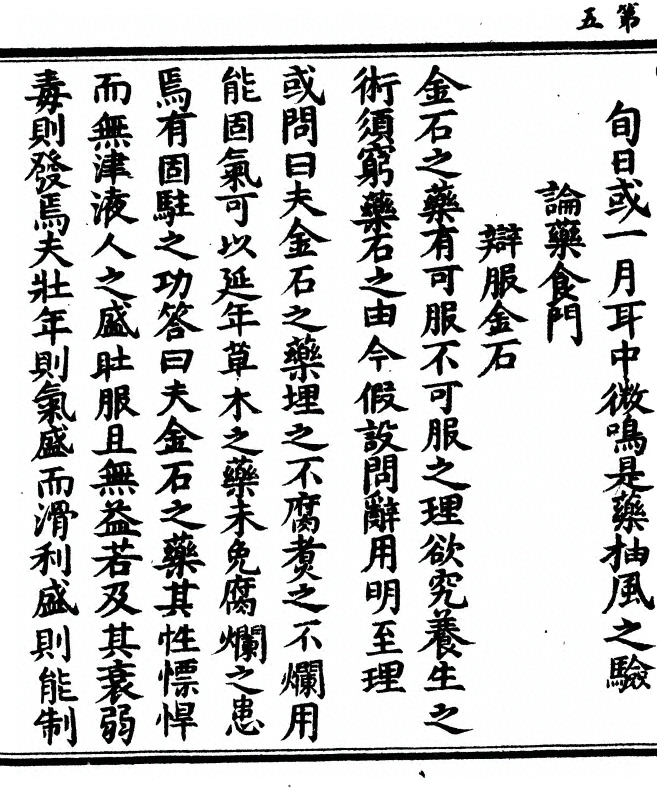 第五
旬日或一月耳中微鳴是藥抽風之驗
論藥食門
辯服金石
金石之藥有可服不可服之理欲究養生之
術須窮藥石之由今假設問辭用明至理
或問曰夫金石之藥埋之不腐煑之不爛用
能固氣可以延年草木之藥未免腐爛之患
焉有固駐之功答曰夫金石之藥其性慓悍
而無津液人之盛壯服且無益若及其衰弱
毒則發焉夫壯年則氣盛而滑利盛則能制